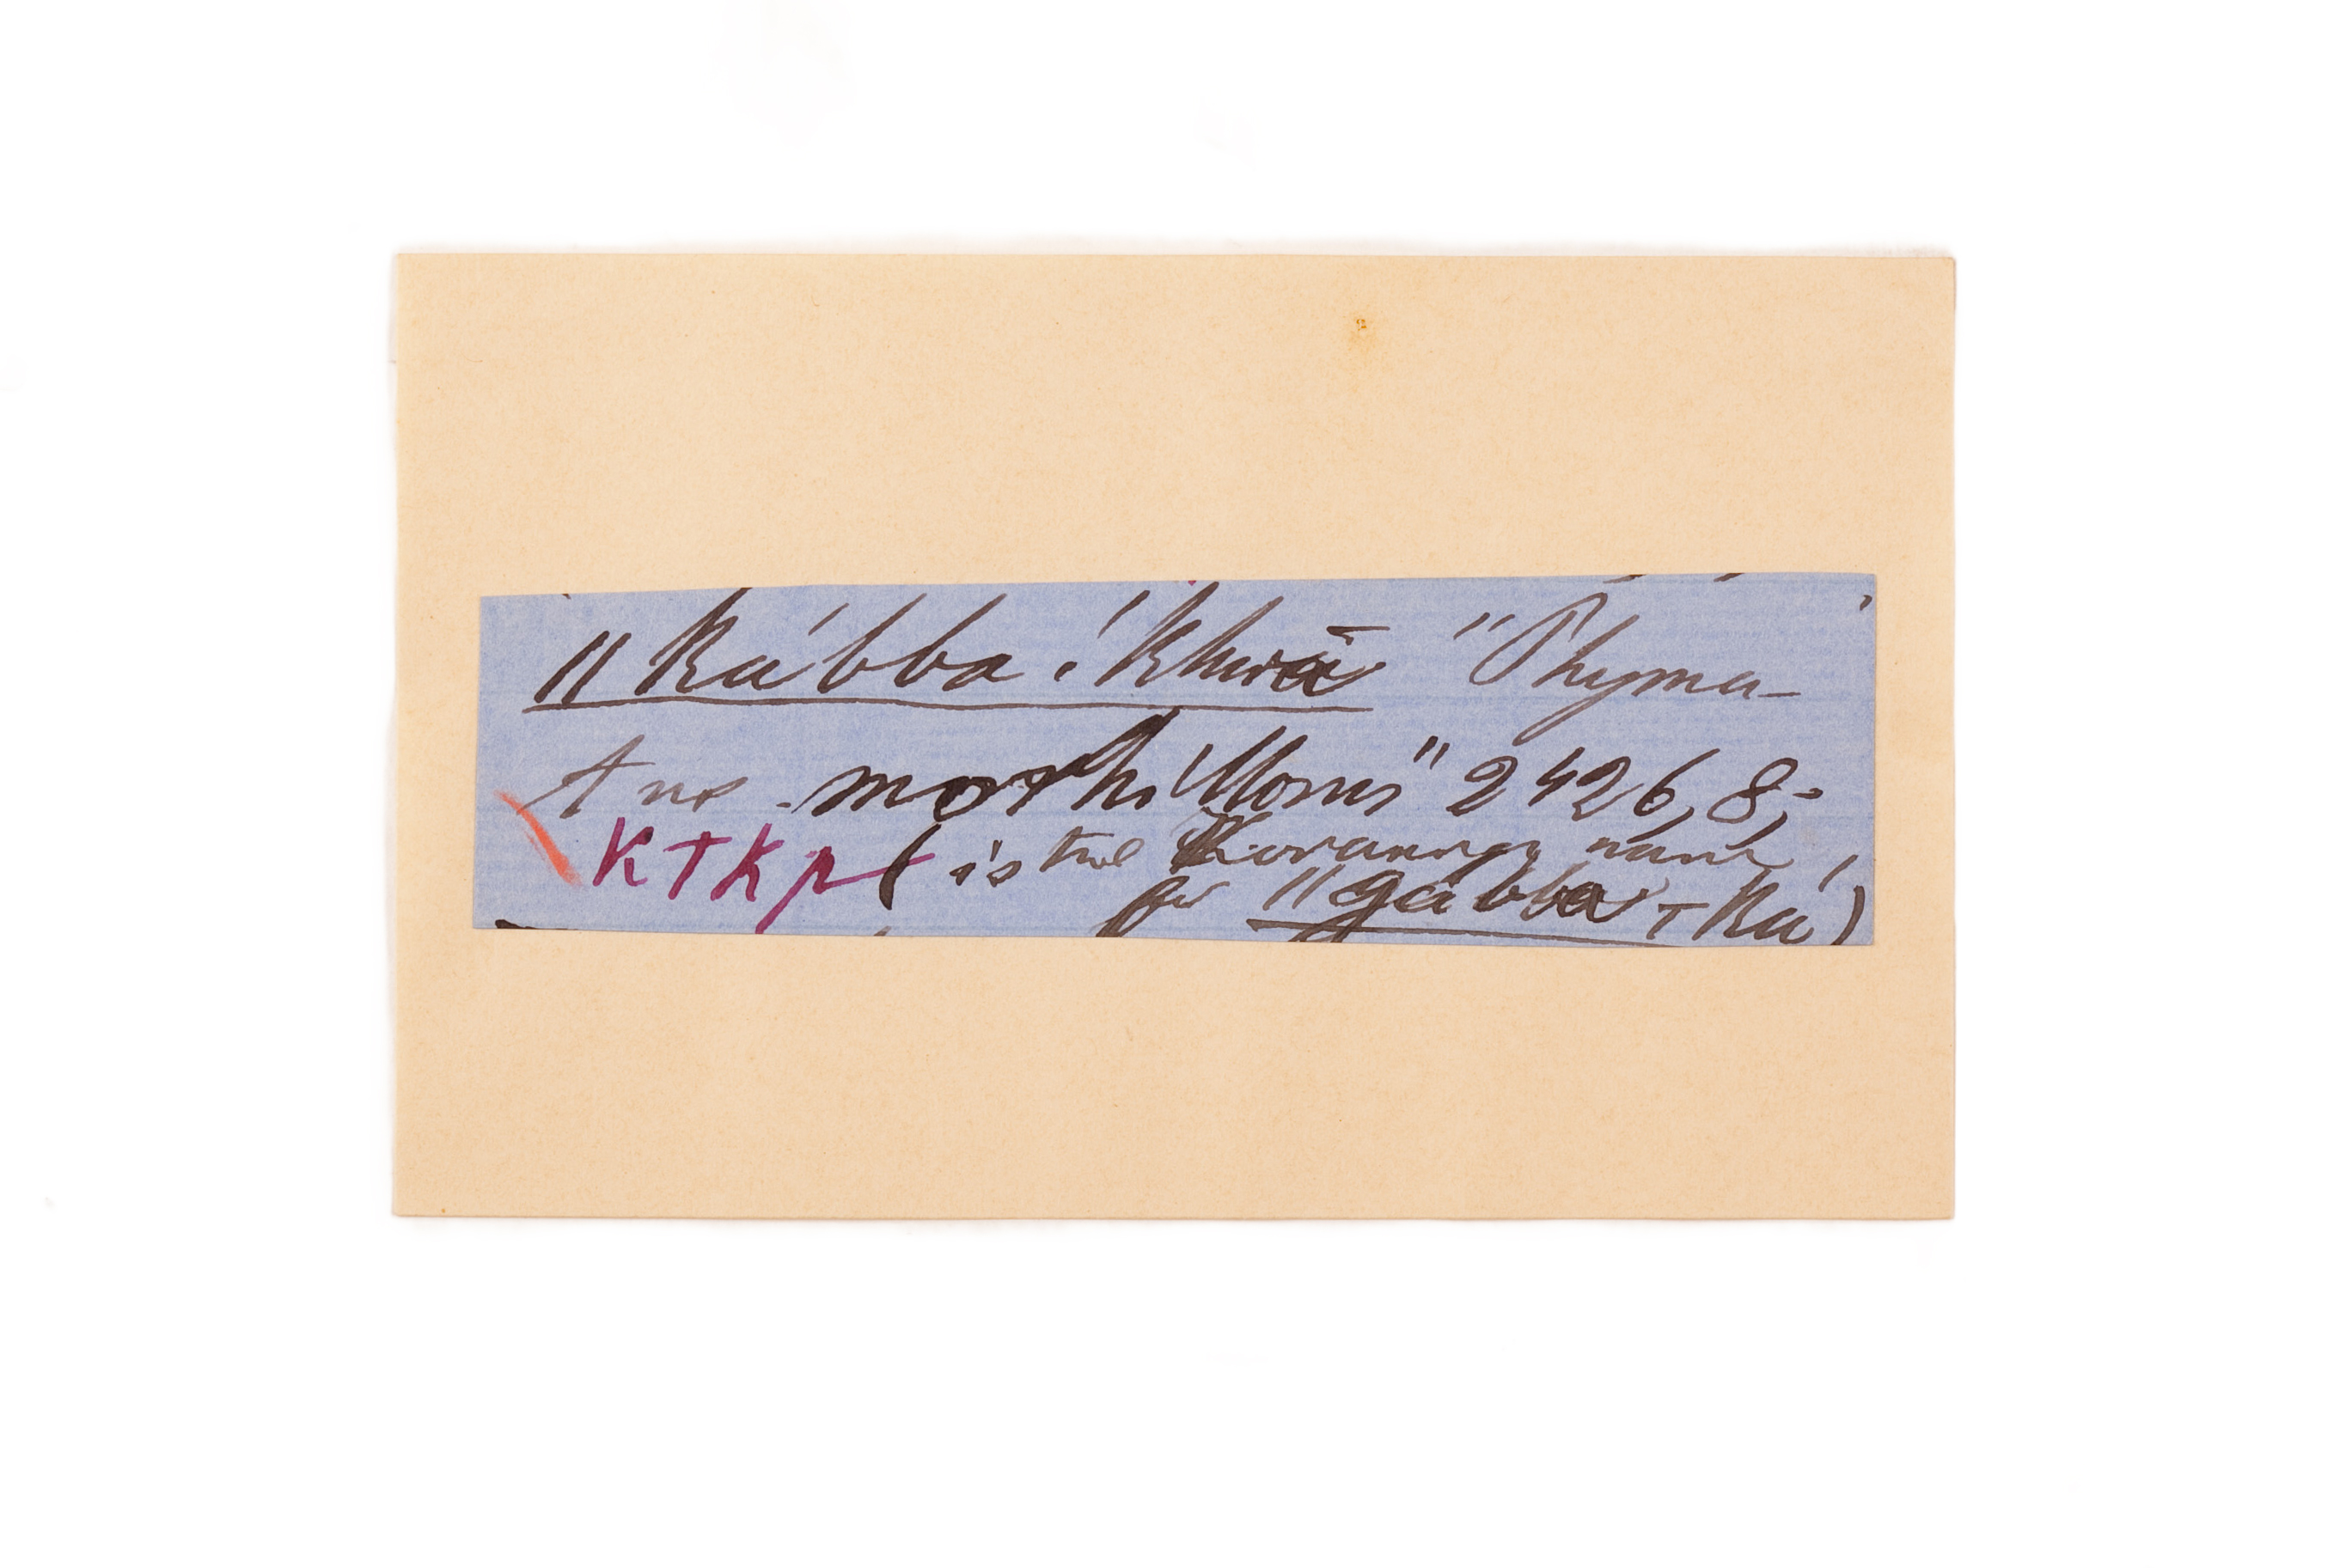 ǁkábba ǀkhwā "Phyma-
tus morbillosus" 2426, 8,
K T K p (is the Koranna name
for ǁgabba-ka)